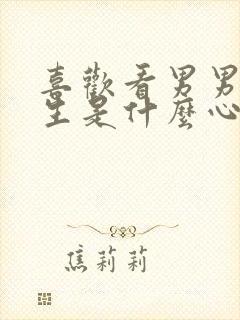 喜歡看男男
生是什麼心
焦莉莉